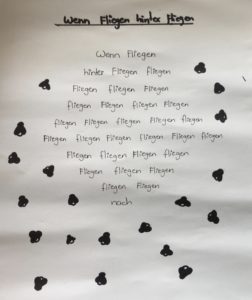 Wenn Fliegen hinter Fliegen
Wenn Fliegen
hinter Fliegen fliegen
Fliegen fliegen Fliegen
fliegen Fliegen Fliegen fliegen
fliegen Fliegen fliegen Fliegen fliegen
Fliegen fliegen Fliegen fliegen Fliegen fliegen
Fliegen fliegen Fliegen fliegen
Fliegen fliegen Fliegen
fliegen Fliegen
nach